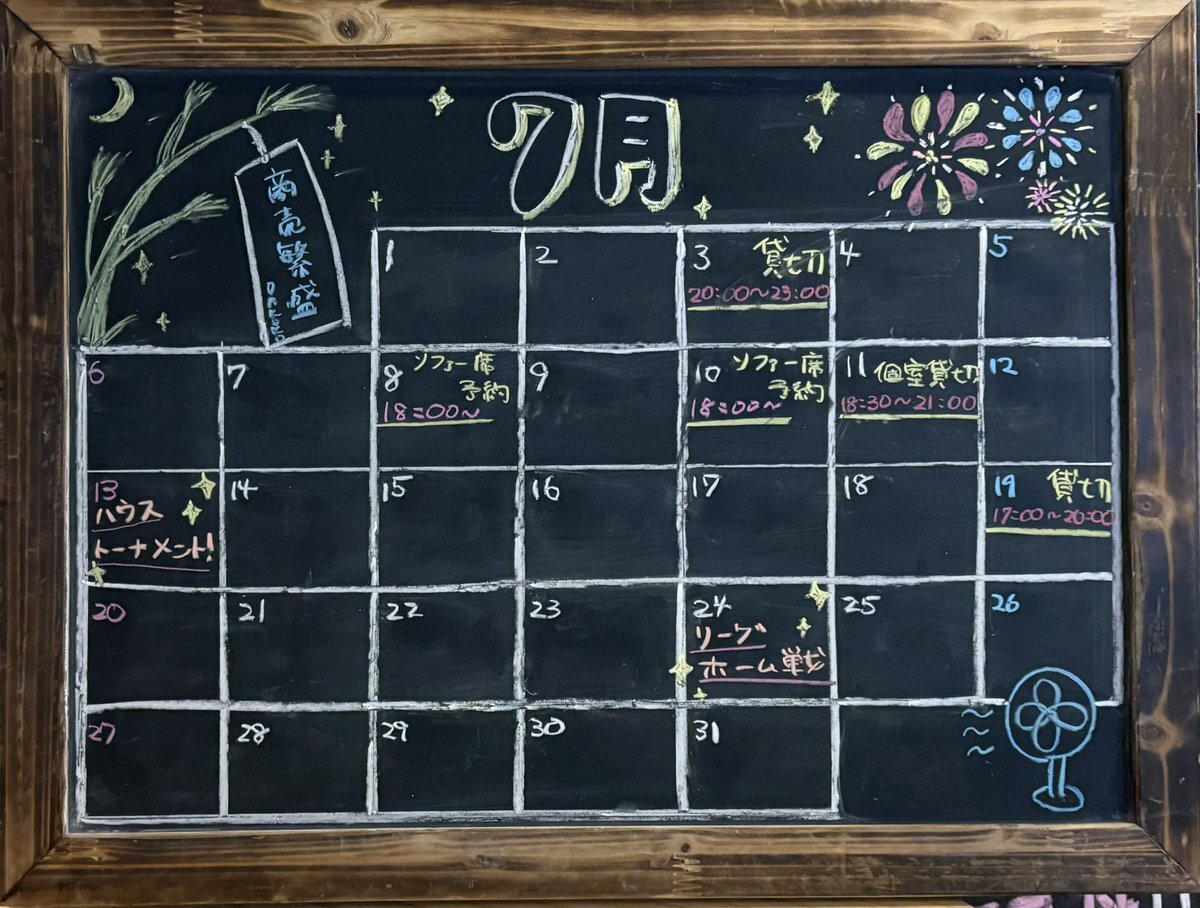 7月
商売繁盛
1
2
3 貸切
20:00〜23:00
4
5
6
7
8 ソファー席
予約
18:00〜
9
10 ソファー席
予約
18:00〜
11 個室貸切
18:30〜21:00
12
13
ハウス
トーナメント!
14
15
16
17
18
19 貸切
17:00〜20:00
20
21
22
23
24
リーグ
ホーム戦
25
26
27
28
29
30
31